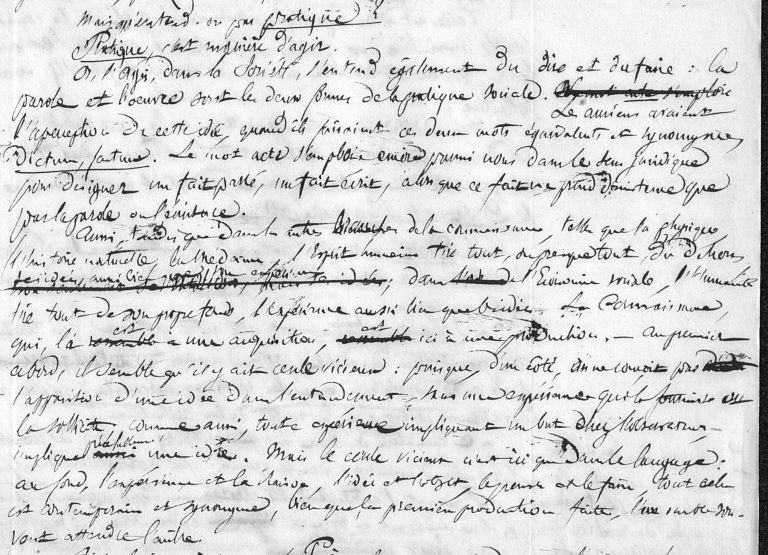 Mais qu'entend-on par pratique ?
Pratique, c'est manière d'agir.
Or, l'agir, dans la Société, s'entend également du dire et du faire : la
parole et l'oeuvre sont les deux formes de la pratique sociale.
Les anciens avaient
l'aperception de cette idée, quand ils faisaient ces deux mots équivalents et synonymes,
Dictum, factum. Le mot acte s'emploie encore parmi nous dans le sens juridique
pour désigner un fait passé, un fait écrit, alors que ce fait ne prend d'existence que
par la parole ou l'écriture.
Ainsi, tandis que dans les autres branches de la connaissance, telle que la physique,
l'histoire naturelle, l'Esprit humain tire tout, ou presque tout, du dehors,
ses idées aussi bien que ; dans l'Economie sociale, l'Humanité
tire tout de son propre fonds, l'expérience aussi bien que l'idée. La Connaissance,
qui, là est une acquisition, est ici une production. — Au premier
abord, il semble qu'il y ait cercle vicieux : puisque, d'un côté, on ne conçoit pas
l'apparition d'une idée dans l'entendement, sans une expérience qui la
la sollicite, comme aussi, toute expérience impliquant un but chez l'observateur,
implique une idée. Mais le cercle vicieux n'est ici que dans le langage :
au fond, l'expérience et la raison, l'idée et l'objet, le penser et le faire, tout cela
est contemporain et synonyme, bien que, la première production faite, l'une semble sou-
vent attendre l'autre.